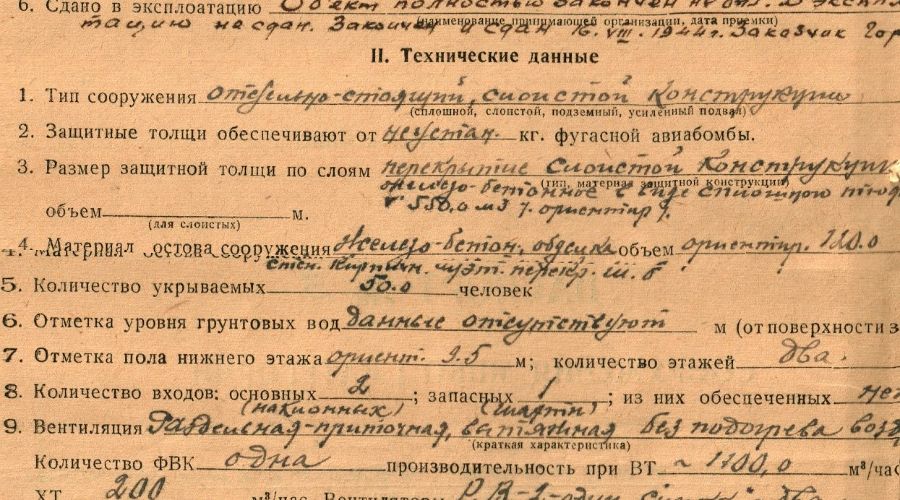 6. Сдано в эксплоатацию Объект полностью закончен
(наименование принимающей организации, дата приемки)
тацию не сдан. Закончен и сдан 16.VIII.1944г. Заказчик Гор
II. Технические данные
1. Тип сооружения отдельно-стоящий, слоистой конструкции
(сплошной, слоистой, подземный, усиленный подвал)
2. Защитные толщи обеспечивают от неустан. кг. фугасной авиабомбы.
3. Размер защитной толщи по слоям перекрытие слоистой конструкции
(тип, материал защитной конструкции)
железо-бетонное в виде сплошного
объем м. 550,0 м3 ориентир.
(для слоистых)
4. Материал остова сооружения Железо-бетон, обделка объем ориентир. 120.0
стен. кирпичн. перекр. ж. б
5. Количество укрываемых 50.0 человек
6. Отметка уровня грунтовых вод данные отсутствуют м (от поверхности з
7. Отметка пола нижнего этажа ориент. 3.5 м; количество этажей два.
8. Количество входов: основных 2 ; запасных 1 ; из них обеспеченных нет
(наклонных) (шахтн)
9. Вентиляция Раздельная-приточная, вытяжная без подогрева возд
(краткая характеристика)
Количество ФВК одна производительность при ВТ ~ 1100,0 м³/час
ХТ 200 м³/час. Вентиляторы